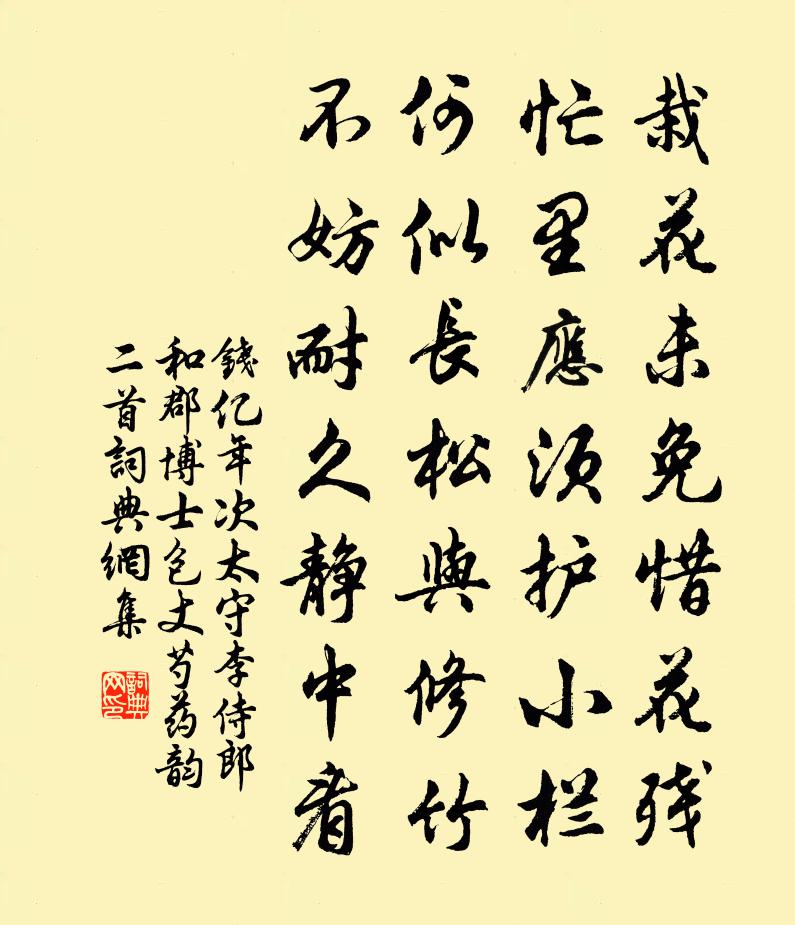 栽花未免惜花残
忙里應须护小栏
何似長松與修竹
不妨耐久静中看
錢亿年次太守李侍郎
和郡博士包丈芍药韵
二首詞典網集
詞典网印